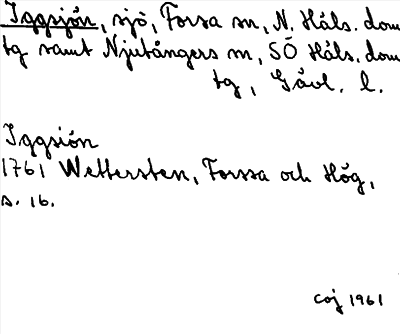 Iggsjön, sjö, Forsa sn, N. Häls. dom
tg samt Njutångers sn, SÖ Häls. dom
tg, Gävl. l.
Iggsiön
1761 Wettersten, Forssa och Hög,
s. 16.
coj 1961